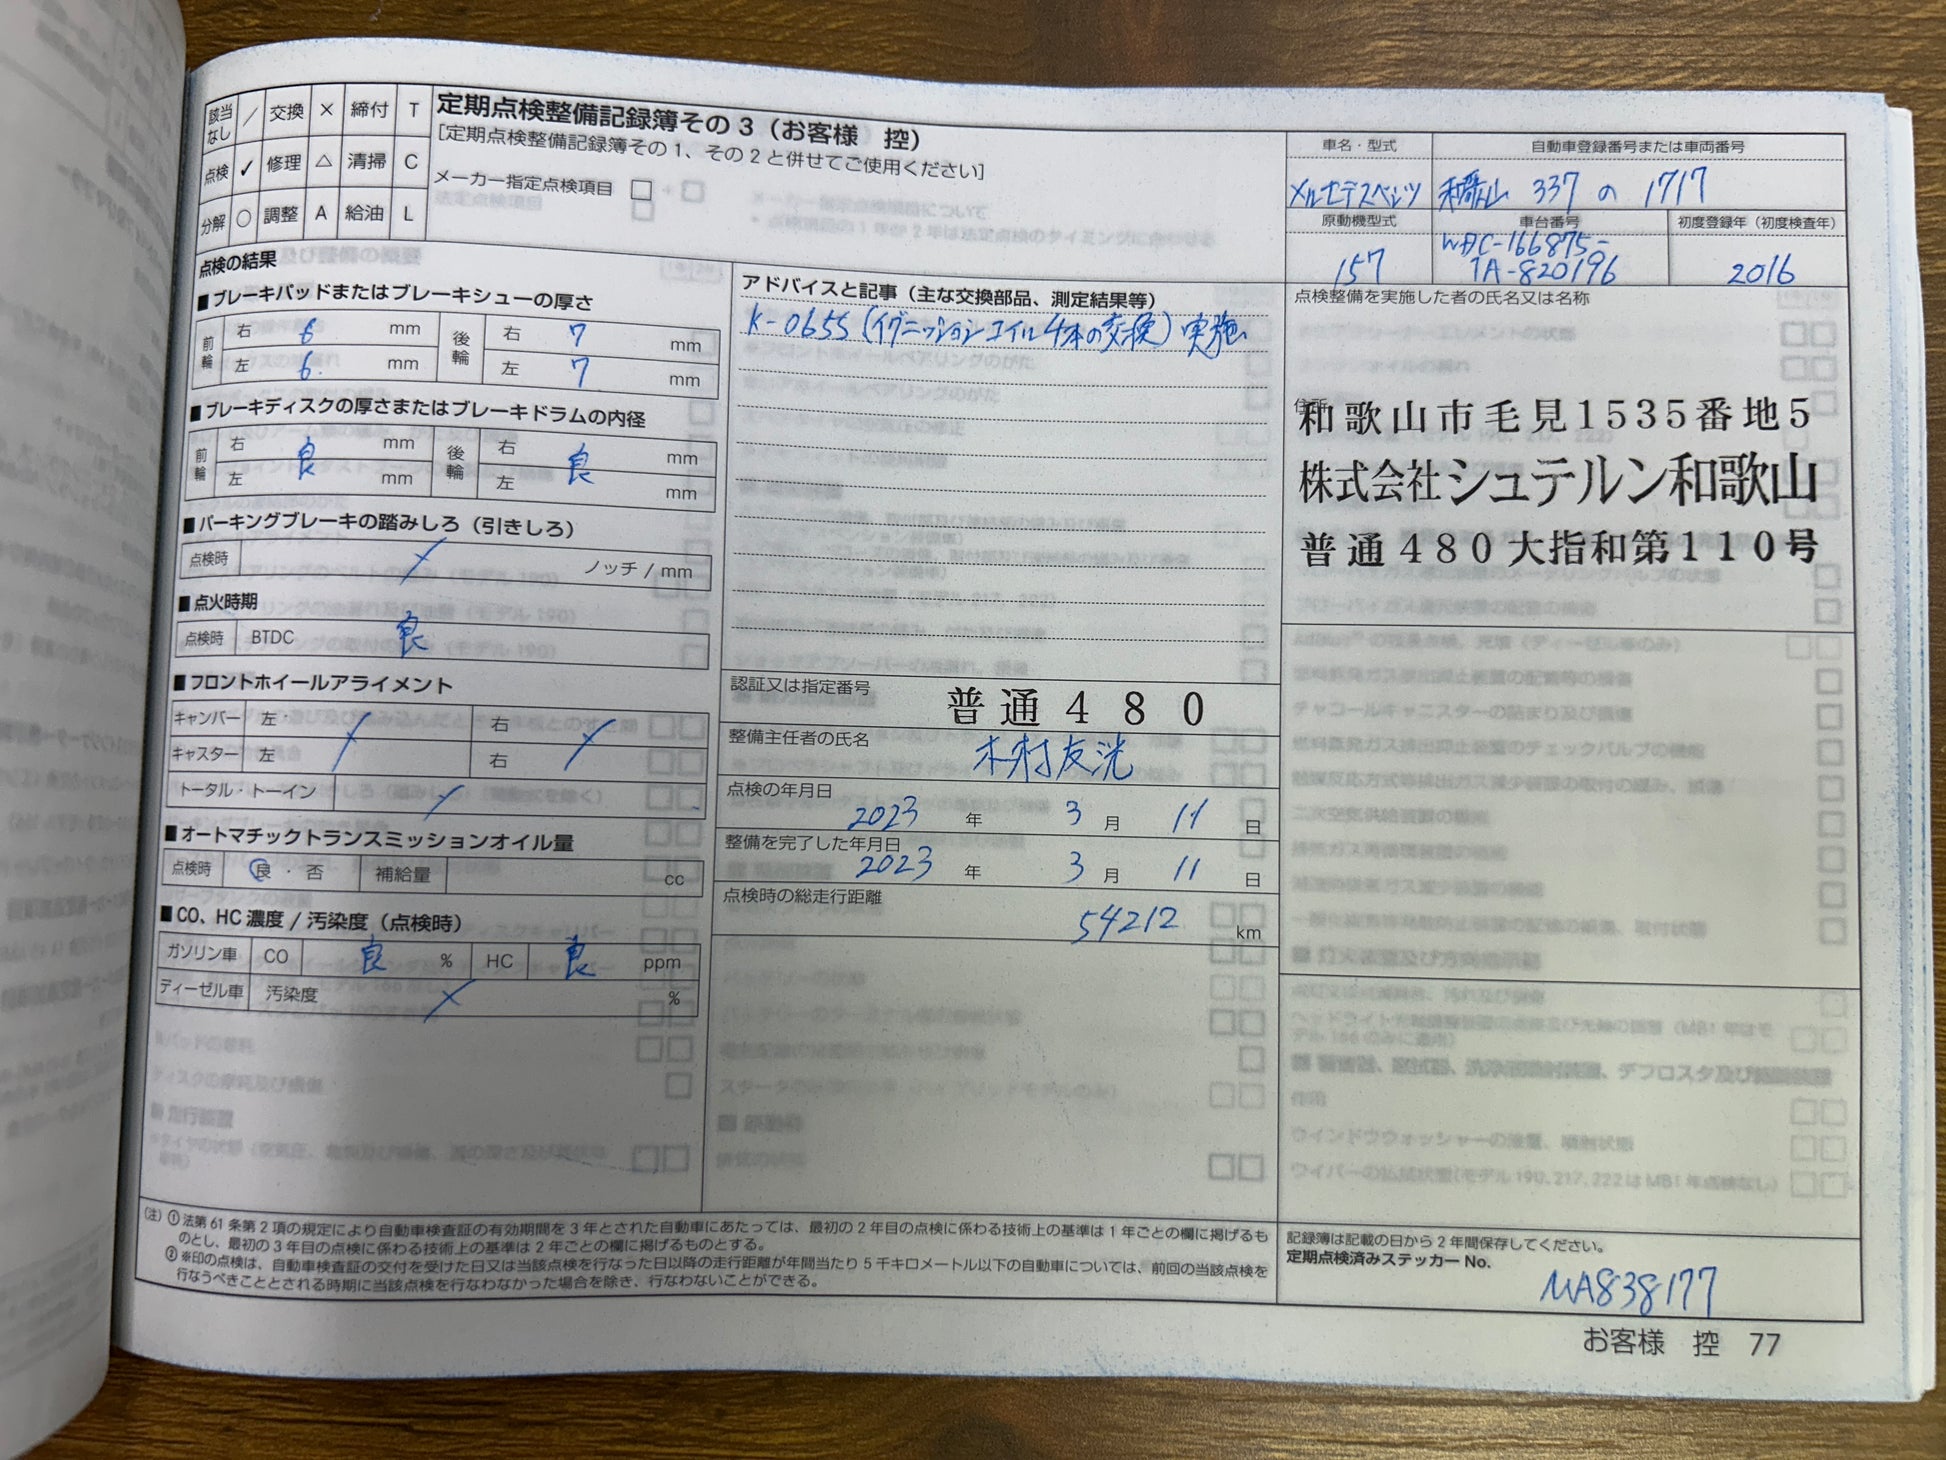 該当なし ／ 交換 × 締付 T
点検 ✓ 修理 △ 清掃 C
分解 ○ 調整 A 給油 L
定期点検整備記録簿その3（お客様 控）
[定期点検整備記録簿その1、その2と併せてご使用ください]
メーカー指定点検項目 □
車名・型式 自動車登録番号または車両番号
メルセデスベンツ 和歌山 337 の 1717
原動機型式 車台番号 初度登録年（初度検査年）
157 WDC-166875-1A-820196 2016
点検の結果
■ブレーキパッドまたはブレーキシューの厚さ
前輪 右 6 mm 後輪 右 7 mm
左 6. mm 左 7 mm
■ブレーキディスクの厚さまたはブレーキドラムの内径
前輪 右 良 mm 後輪 右 良 mm
左 mm 左 mm
■パーキングブレーキの踏みしろ（引きしろ）
点検時 ノッチ / mm
■点火時期
点検時 BTDC 良
■フロントホイールアライメント
キャンバー 左 右
キャスター 左 右
トータル・トーイン
■オートマチックトランスミッションオイル量
点検時 良・否 補給量 cc
■CO、HC濃度 / 汚染度（点検時）
ガソリン車 CO 良 % HC 良 ppm
ディーゼル車 汚染度 %
アドバイスと記事（主な交換部品、測定結果等）
K-0655（イグニッションコイル4本の交換）実施
認証又は指定番号 普通480
整備主任者の氏名 木村友洸
点検の年月日
2023 年 3 月 11 日
整備を完了した年月日
2023 年 3 月 11 日
点検時の総走行距離
54212 km
点検整備を実施した者の氏名又は名称
住所
和歌山市毛見1535番地5
株式会社シュテルン和歌山
普通480大指和第110号
（注）①法第61条第2項の規定により自動車検査証の有効期間を3年とされた自動車にあたっては、最初の2年目の点検に係わる技術上の基準は1年ごとの欄に掲げるも
のとし、最初の3年目の点検に係わる技術上の基準は2年ごとの欄に掲げるものとする。
②※印の点検は、自動車検査証の交付を受けた日又は当該点検を行なった日以降の走行距離が年間当たり5千キロメートル以下の自動車については、前回の当該点検を
行なうべきこととされる時期に当該点検を行なわなかった場合を除き、行なわないことができる。
記録簿は記載の日から2年間保存してください。
定期点検済みステッカーNo.
MA838177
お客様 控 77